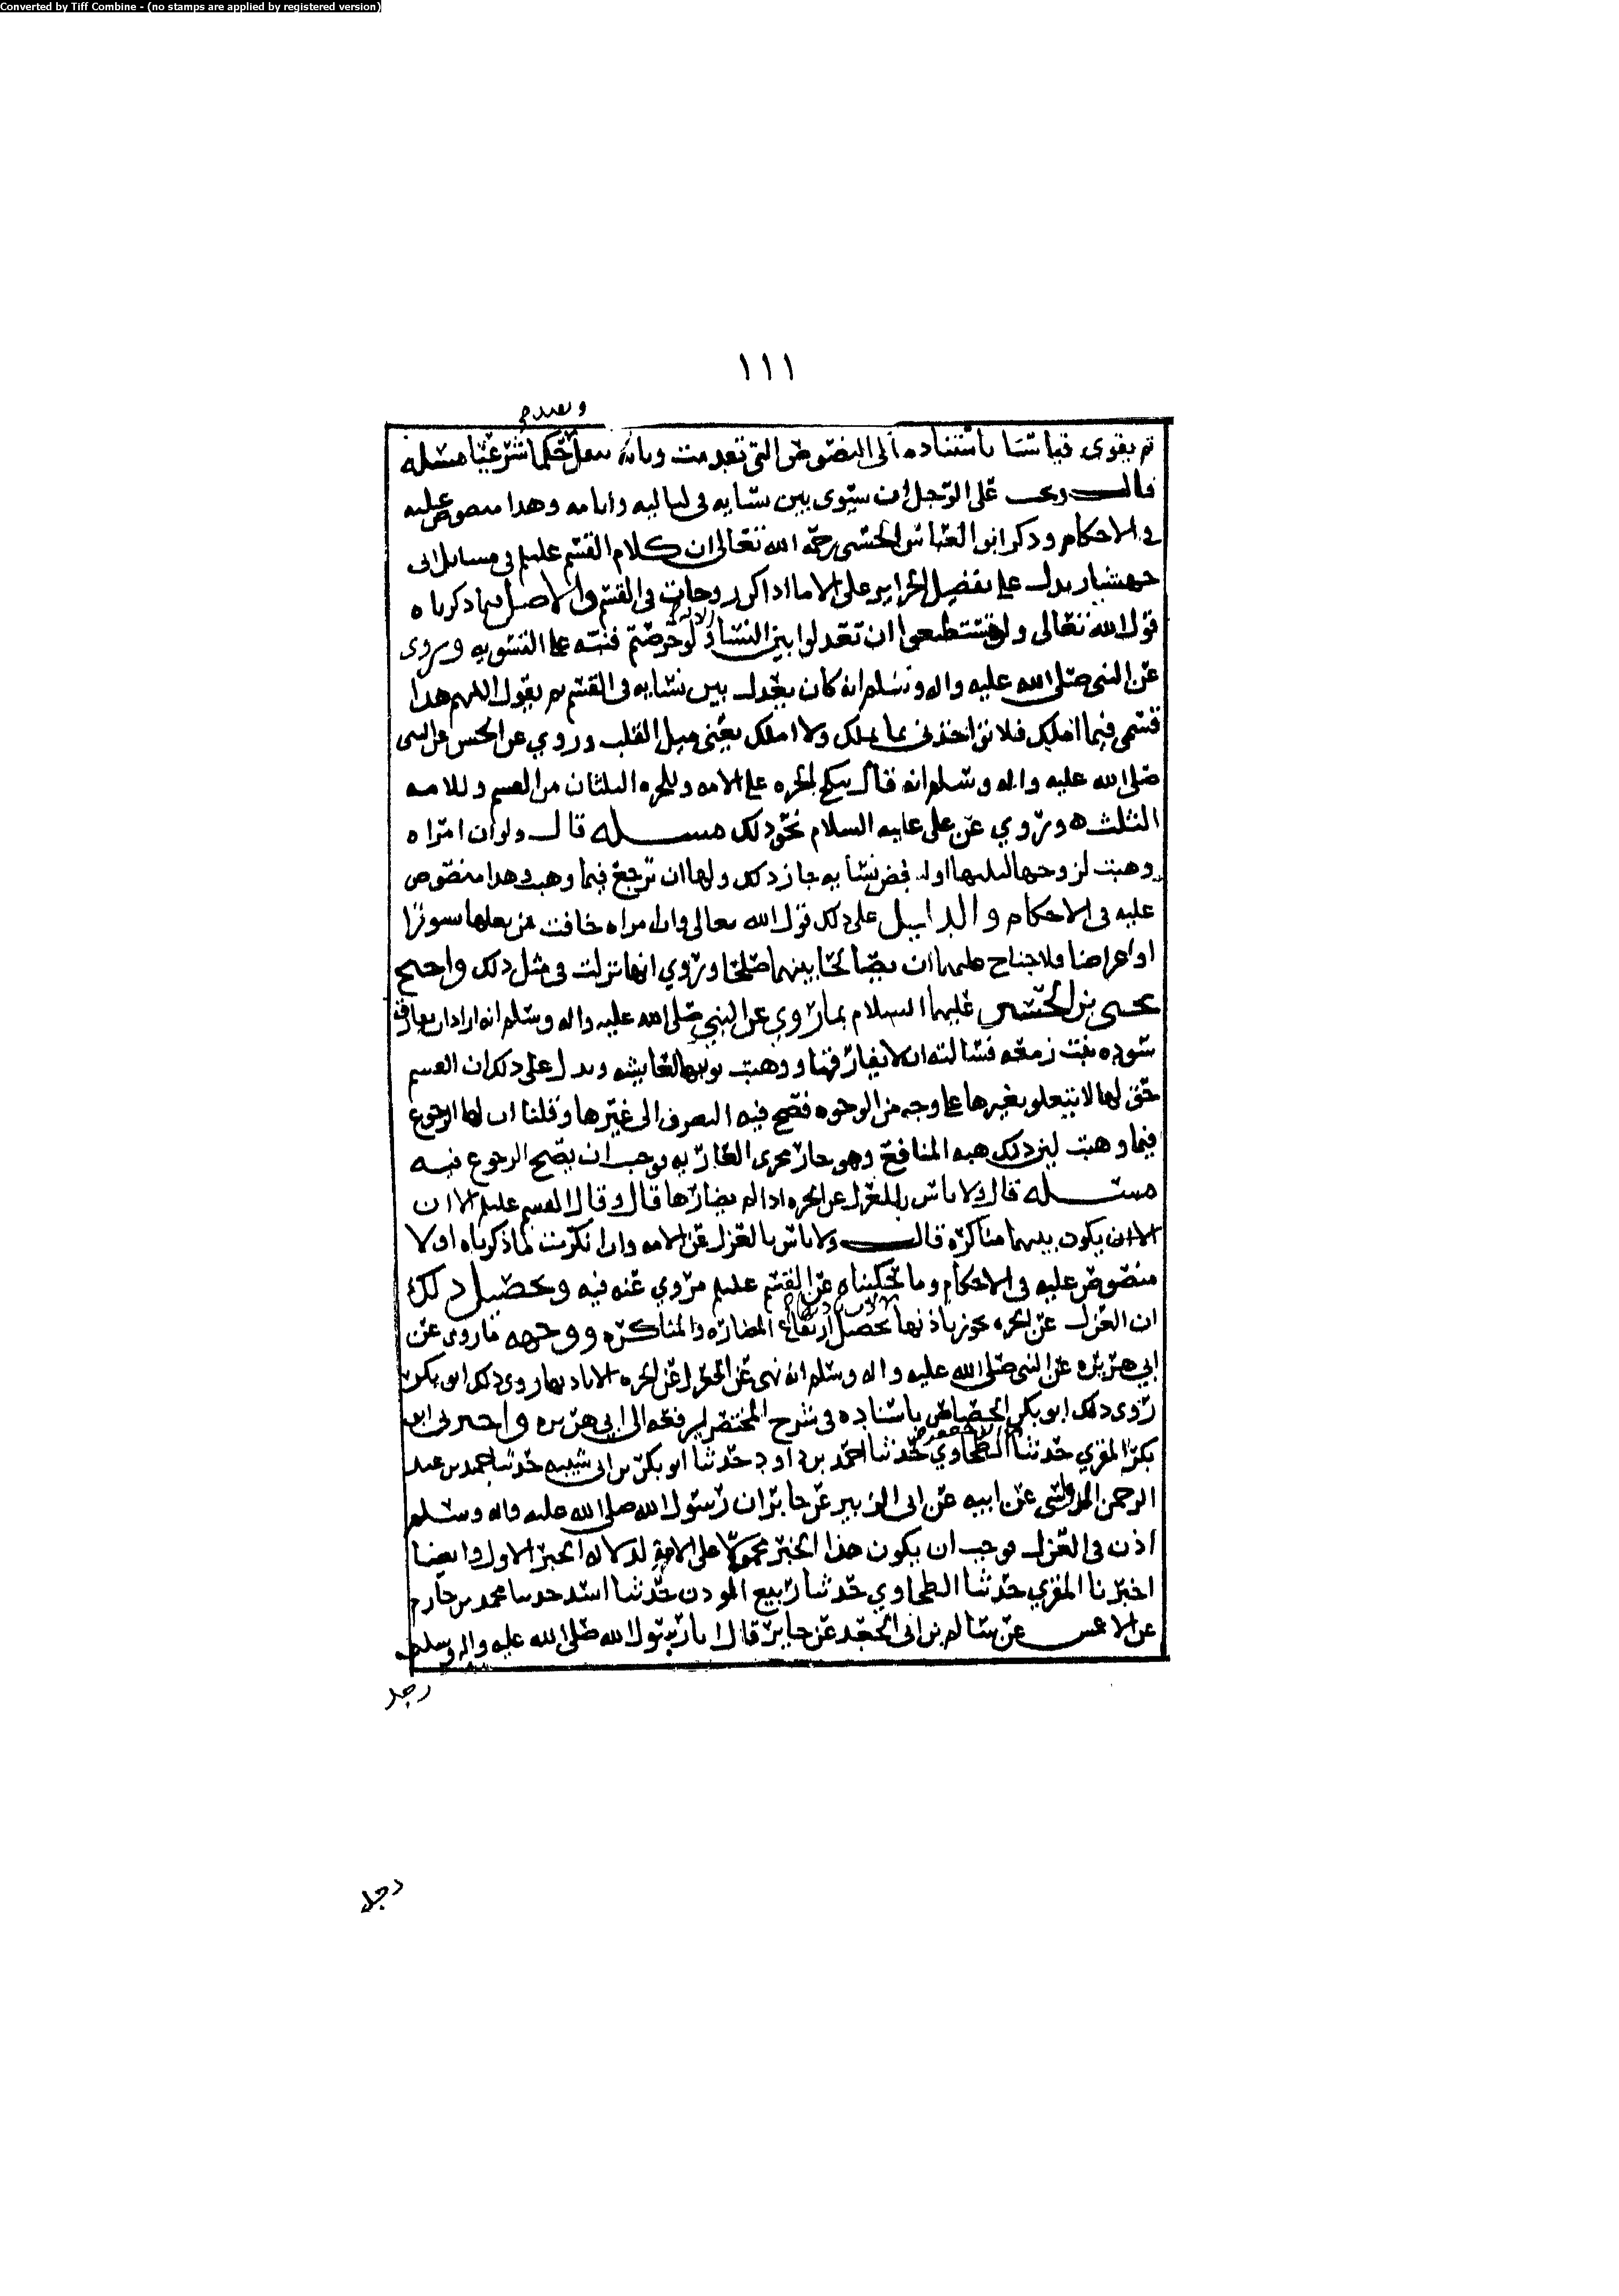 Converted by Tiff Combine - (no stamps are applied by registered version)
١١١
ثم يقوى قياسنا باستناده الى النصوص التي تقدمت وبانه حكما شرعيا مسئلة
قال ويجب على الرجل ان يسوى بين نسايه في لياليه وايامه وهذا منصوص عليه
في الاحكام وذكر ابو العباس الحسني رحمه الله تعالى ان كلام القسم عليلم في مسايل ابى
جهشيار يدل على تفضيل الحراير على الاما اذا كن زوجات في القسم والاصل فيما ذكرناه
قول الله تعالى ولن تستطيعوا ان تعدلوا بين النسا ولو حرصتم فنبه على التسويه وروى
عن النبي صلى الله عليه واله وسلم انه كان يعدل بين نسايه في القسم ثم يقول اللهم هذا
قسمى فيما املك فلا تواخذنى بما تملك ولا املك يعنى ميل القلب وروي عن الحسن عن النبى
صلى الله عليه واله وسلم انه قال ينكح الحره على الامه وللحره الثلثان من القسم وللامه
الثلث وروي عن على عليه السلام نحو ذلك مسئله قال ولو ان امراه
وهبت لزوجها لياليها او لبعض نسايه جاز ذلك ولها ان ترجع فيما وهبت وهذا منصوص
عليه في الاحكام والدليل على ذلك قول الله تعالى وان امراه خافت من بعلها نشوزا
او اعراضا فلا جناح عليهما ان يصالحا بينهما صلحا وروي انها نزلت فى مثل ذلك واحتج
يحيى بن الحسين عليهما السلام بما روي عن النبي صلى الله عليه واله وسلم انه اراد ان يفارق
سوده بنت زمعه فسالته ان لا يفارقها ووهبت يومها لعايشه ويدل على ذلك ان القسم
حق لها لا يتعلق بغيرها على وجه من الوجوه فصح فيه التصرف الى غيرها وقلنا ان لها الرجوع
فيما وهبت لان ذلك هبه المنافع وهو جار مجرى العاريه يوجب ان يصح الرجوع فيه
مسئله قال ولا باس بالعزل عن الحره اذا لم يضارها قال وقال القسم عليلم الا ان
الا ان يكون بينهما مناكره قال ولا باس بالعزل عن الامه وان انكرت ما ذكرناه اولا
منصوص عليه في الاحكام وما حكيناه عن القسم عليلم مروي عنه فيه وتحصيل ذلك
ان العزل عن الحره يجوز باذنها تحصيل ارتفاع المضاره والمناكره ووجهه ما روى عن
ابي هريره عن النبى صلى الله عليه واله وسلم انه نهى عن العزل عن الحره الا باذنها روى ذلك ابو بكر
روى ذلك ابو بكر الجصاص باسناده في شرح المختصر يرفعه الى ابي هريره واخبرنى ابو
بكر المقري حدثنا الطحاوي حدثنا احمد بن داود حدثنا ابو بكر بن ابى شيبه حدثنا حميد بن عبد
الرحمن الرواسى عن ابيه عن ابى الزبير عن جابر ان رسول الله صلى الله عليه واله وسلم
اذن فى العزل فوجب ان يكون هذا الخبر محمولا على الامة لدلاله الخبر الاول وايضا
اخبرنا المقري حدثنا الطحاوي حدثنا ربيع الموذن حدثنا اسد حدثنا محمد بن حازم
عن الاعمش عن سالم بن ابى الجعد عن جابر قال يا رسول الله صلى الله عليه واله وسلم
رجل
رجل